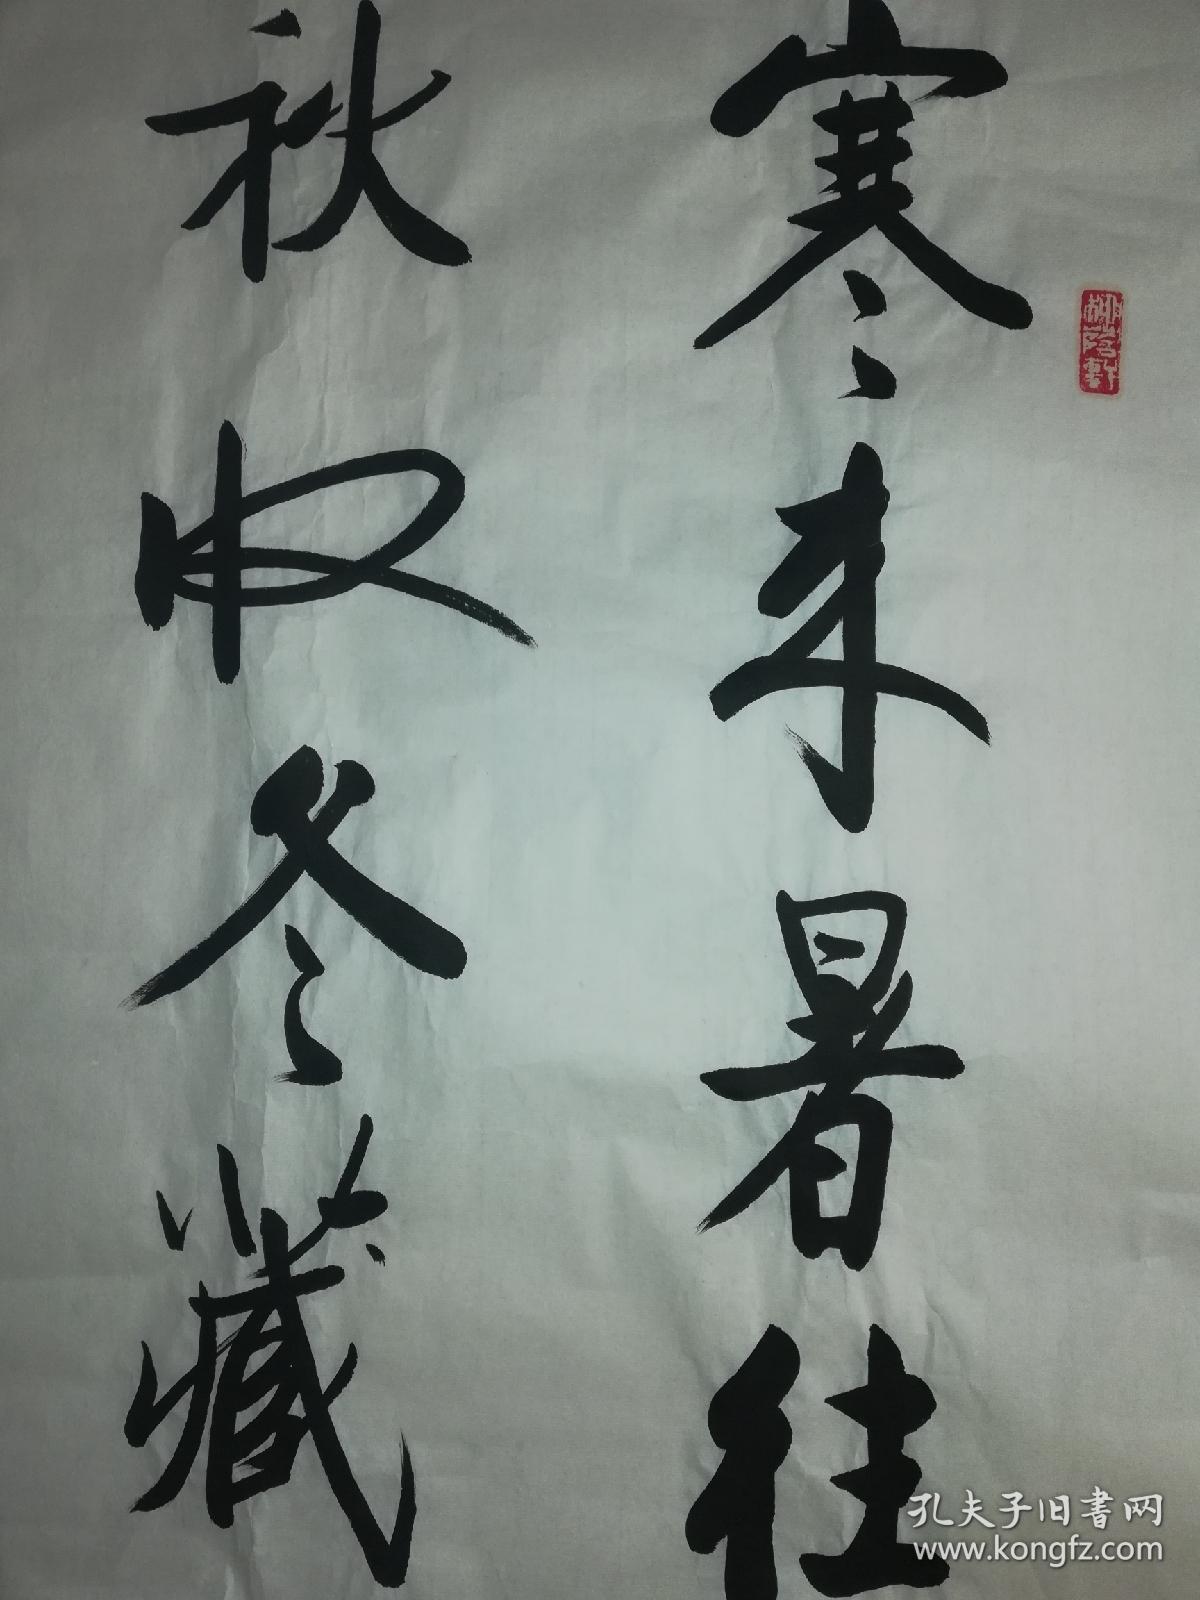 寒来暑往
秋收冬藏
孔夫子旧書网
www.kongfz.com